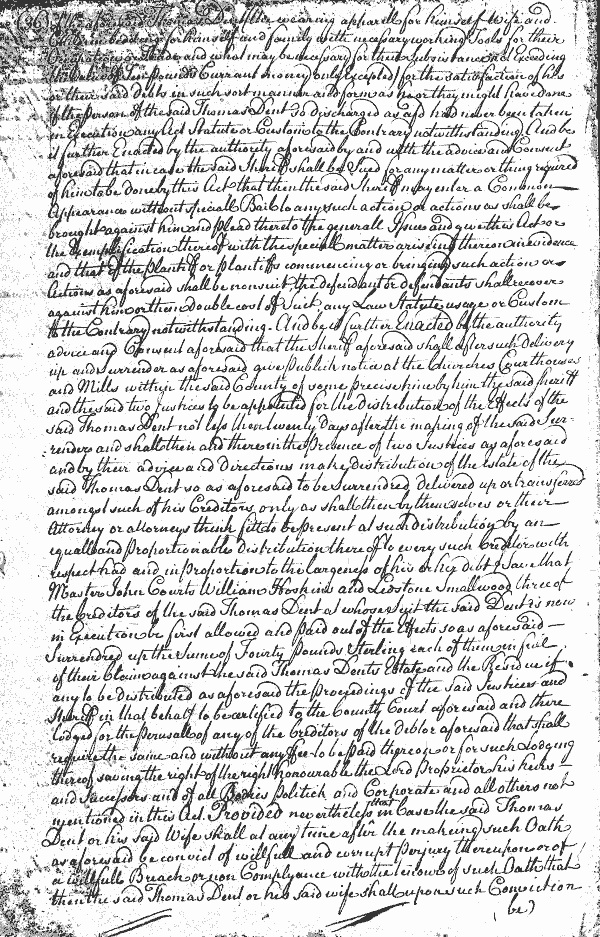 (96) The aforesaid Thomas Dent the wearing apparell for himself Wife and
Children bedding for himself and family with necessary working Tools for their
Occupation or Trade and what may be necessary for their Subsistance not Exceeding
the Value of Ten pounds Currant money only excepted for the satisfaction of his
or their said debts in such sort manner and form as he or they might have done
if the person of the said Thomas Dent so discharged as afd had never been taken
in Execution any Act Statute or Custom to the Contrary notwithstanding. And be
it further Enacted by the authority aforesaid by and with the advice and Consent
aforesaid that in case the said Sheriff shall be Sued for any matter or thing required
of him to be done by this Act that then the said Sheriff may enter a Common
Appearance without speciall Bail to any such action or actions as shall be
brought against him and plead thereto the generall Issue and give this Act or
the Exemplification thereof with the speciall matter arising thereon in evidence
and that if the plantiff or plantiffs commencing or bringing such action or
Actions as aforesaid shall be nonsuit the defendant or defendants shall recover
against him or them Double cost of Suit any Law Statute usage or Custom
to the Contrary notwithstanding. And be it further Enacted by the authority
advice and Consent aforesaid that the Sheriff aforesaid shall after such delivery
up and surrender as aforesaid give Publick notice at the Churches Courthouses
and Mills within the said County of some precise time by him the said Sheriff
and the said two Justices to be appointed for the distribution of the Effects of the
said Thomas Dent not less then twenty Days after the making of the said Sur-
-render and shall then and there in the Presence of two Justices as aforesaid
and by their advice and directions make distribution of the Estate of the
said Thomas Dent so as aforesaid to be Surrendred delivered up or transferrd
amongst such of his Creditors, only as shall then by themselves or their
Attorney or attorneys think fitt to be present at such distribution by an
equall and Proportionable Distribution thereof to every such Creditor with
respect had and in proportion to the largeness of his or her debt Save that
Master John Courts William Hoskins and Ledstone Smallwood three of
the Creditors of the said Thomas Dent at whose suit the said Dent is now
in Execution be first allowed and paid out of the Effects so as aforesaid
Surrendred up the Sume of Fourty pounds Sterling each of them in full
of their Claim against the said Thomas Dents Estate and the Residue if
any to be distributed as aforesaid the proceedings of the said Justices and
Sheriff in that behalf to be certified to the County Court aforesaid and there
lodged for the perusall of any of the Creditors of the Debtor aforesaid that shall
require the same and without any ffee to be paid thereon or for such Lodging
thereof saving the right of the right honourable the Lord Proprietor his heirs
and Successors and of all Bodies Politick and Corporate and all others not
mentioned in this Act. Provided nevertheless that in Case the said Thomas
Dent or his said Wife shall at any time after the making such Oath
as aforesaid be convict of willfull and corrupt perjury thereupon or of
a willfull Breach or non Complyance with the tenour of such Oath that
then the said Thomas Dent or his said wife shall upon such Conviction
(be)